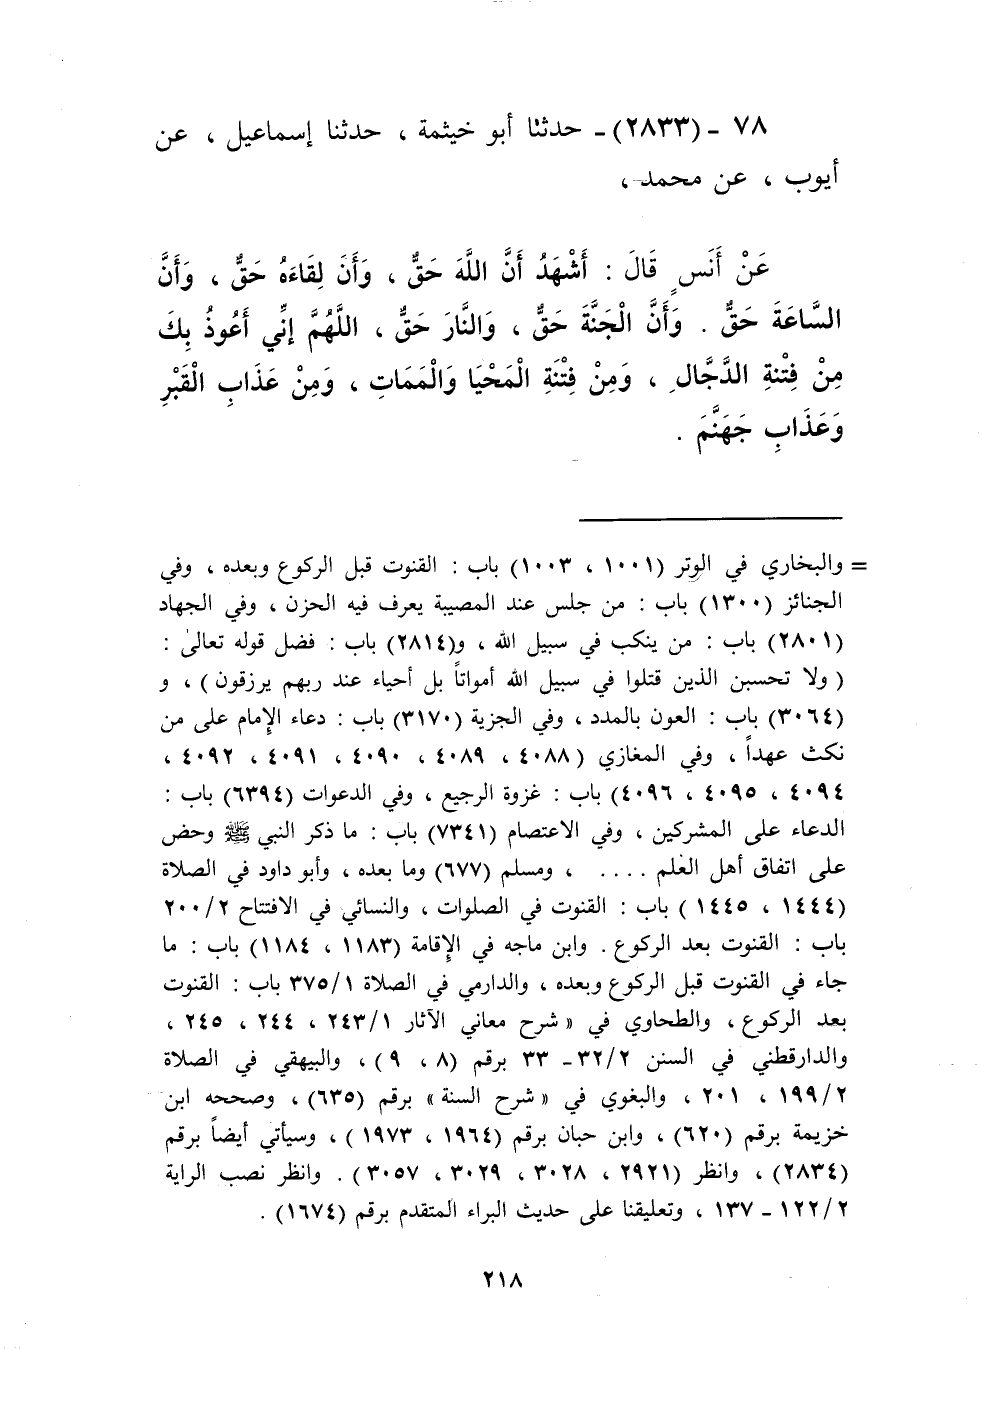 ٧٨ - (٢٨٣٣) - حدثنا أبو خيثمة ، حدثنا إسماعيل ، عن
أيوب ، عن محمد ،
عَنْ أَنَسٍ قَالَ : أَشْهَدُ أَنَّ اللَّهَ حَقٌّ ، وَأَنَ لِقَاءَهُ حَقٌّ ، وَأَنَّ
السَّاعَةَ حَقٌّ . وَأَنَّ الْجَنَّةَ حَقٌّ ، وَالنَّارَ حَقٌّ ، اللَّهُمَّ إنِّي أَعُوذُ بِكَ
مِنْ فِتْنَةِ الدَّجَّالِ ، وَمِنْ فِتْنَةِ الْمَحْيَا وَالْمَمَاتِ ، وَمِنْ عَذَابِ الْقَبْرِ
وَعَذَابِ جَهَنَّمَ .
= والبخاري في الوتر (١٠٠١ ، ١٠٠٣) باب : القنوت قبل الركوع وبعده ، وفي
الجنائز (١٣٠٠) باب : من جلس عند المصيبة يعرف فيه الحزن ، وفي الجهاد
(٢٨٠١) باب : من ينكب في سبيل الله ، و(٢٨١٤) باب : فضل قوله تعالىٰ :
( ولا تحسبن الذين قتلوا في سبيل الله أمواتاً بل أحياء عند ربهم يرزقون ) ، و
(٣٠٦٤) باب : العون بالمدد ، وفي الجزية (٣١٧٠) باب : دعاء الإمام على من
نكث عهداً ، وفي المغازي (٤٠٨٨ ، ٤٠٨٩ ، ٤٠٩٠ ، ٤٠٩١ ، ٤٠٩٢ ،
٤٠٩٤ ، ٤٠٩٥ ، ٤٠٩٦) باب : غزوة الرجيع ، وفي الدعوات (٦٣٩٤) باب :
الدعاء على المشركين ، وفي الاعتصام (٧٣٤١) باب : ما ذكر النبي ﷺ وحض
على اتفاق أهل العلم .... ، ومسلم (٦٧٧) وما بعده ، وأبو داود في الصلاة
(١٤٤٤ ، ١٤٤٥ ) باب : القنوت في الصلوات ، والنسائي في الافتتاح ٢٠٠/٢
باب : القنوت بعد الركوع . وابن ماجه في الإقامة (١١٨٣ ، ١١٨٤) باب : ما
جاء في القنوت قبل الركوع وبعده ، والدارمي في الصلاة ٣٧٥/١ باب : القنوت
بعد الركوع ، والطحاوي في « شرح معاني الآثار ٢٤٣/١ ، ٢٤٤ ، ٢٤٥ ،
والدارقطني في السنن ٣٢/٢ - ٣٣ برقم (٨ ، ٩) ، والبيهقي في الصلاة
١٩٩/٢ ، ٢٠١ ، والبغوي في « شرح السنة » برقم (٦٣٥) ، وصححه ابن
خزيمة برقم (٦٢٠) ، وابن حبان برقم (١٩٦٤ ، ١٩٧٣ ) ، وسيأتي أيضاً برقم
(٢٨٣٤) ، وانظر (٢٩٢١ ، ٣٠٢٨ ، ٣٠٢٩ ، ٣٠٥٧) . وانظر نصب الراية
١٢٢/٢ - ١٣٧ ، وتعليقنا على حديث البراء المتقدم برقم (١٦٧٤) .
٢١٨